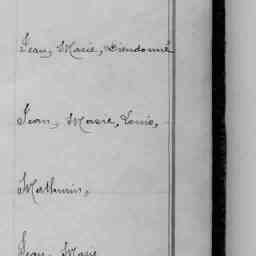 Jean, Marie, Dieudonné
Jean, Marie, Louis,
Mathurin,
Jean, Marie